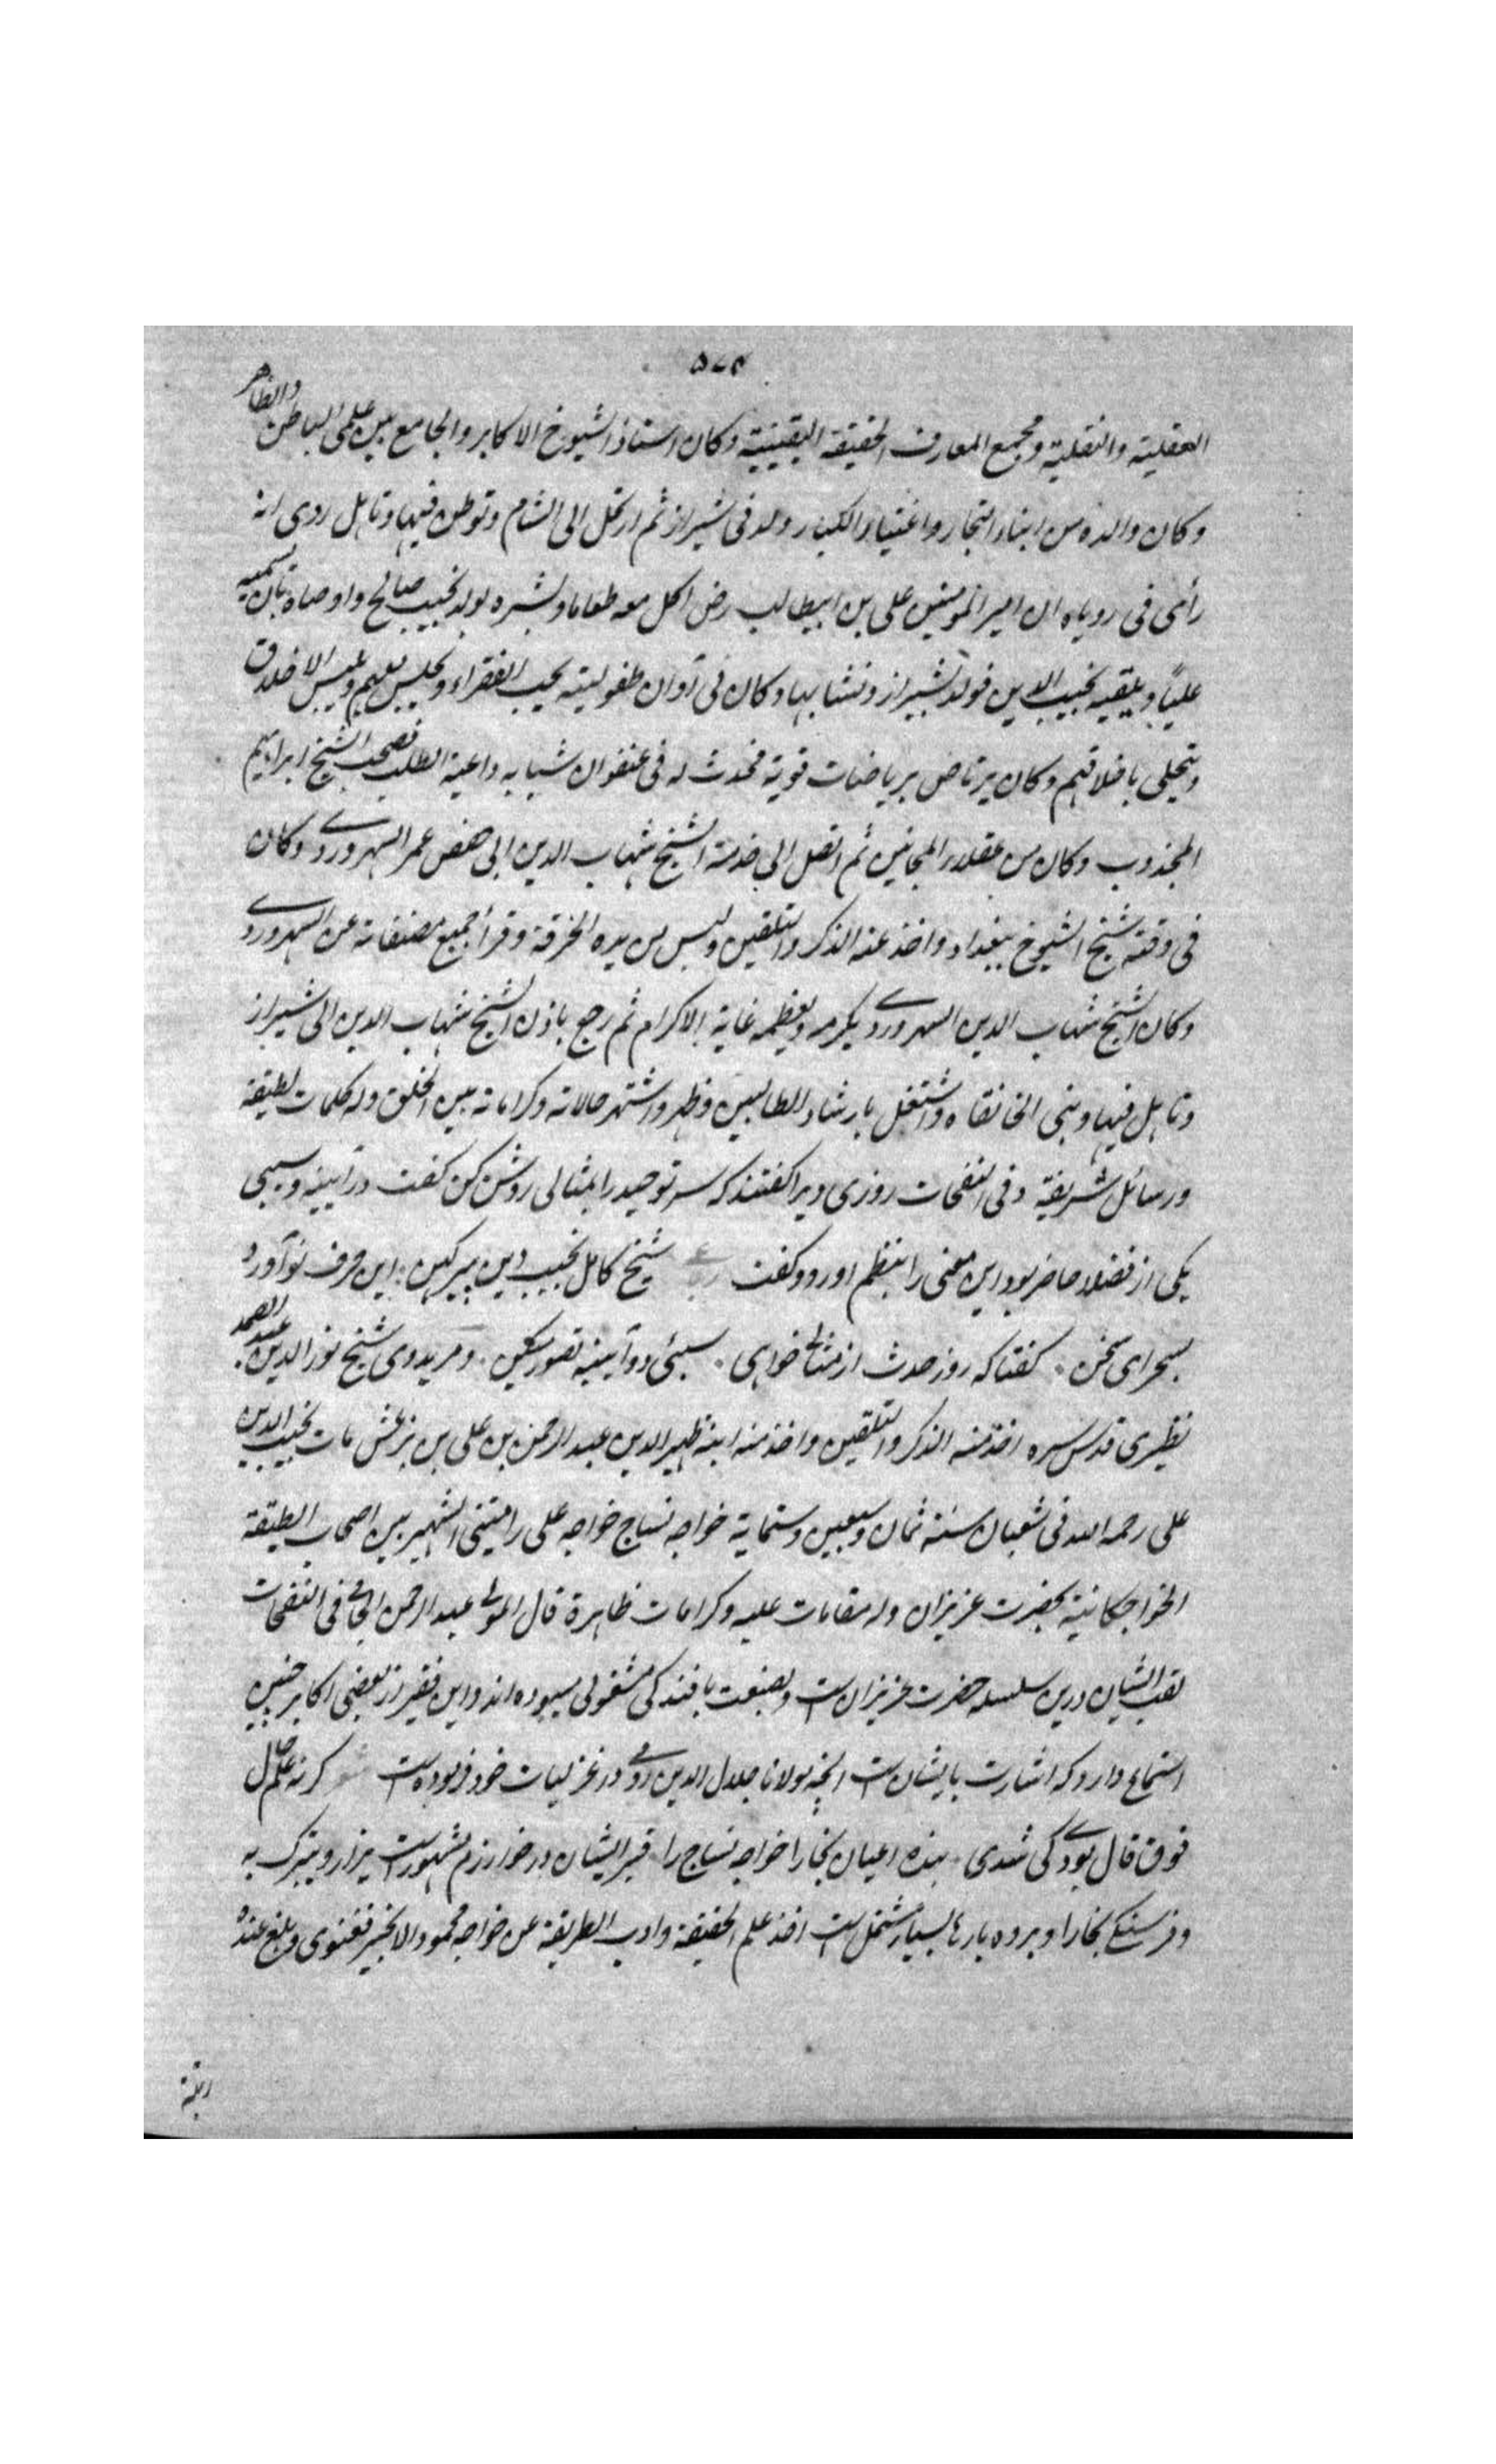 ٥٧٤
العقلیة والنقلیة ومجمع المعارف الحقیقة الیقینیة وکان استاذ الشیوخ الاکابر والجامع بین علمی الباطن والظاهر
وکان والده من ابناء التجار واغنیاء الکبار ولد فی شیراز ثم ارتحل الی الشام وتوطن فیها وتاهل روی انه
رأی فی رویاه ان امیر المومنین علی بن ابیطالب رض اکل معه طعاما وبشره بولد نجیب صالح واوصاه بان یسمیه
علیًا ویلقبه نجیب الدین فولد بشیراز ونشا بها وکان فی آوان طفولیته یحب الفقراء ویجلس معهم ویلبس الاخلاق
ویتحلی باخلاقهم وکان یرتاض بریاضات قویة فحدث له فی عنفوان شبابه داعیة الطلب فصحب الشیخ ابراهیم
المجذوب وکان من عقلاء المجانین ثم اتصل الی خدمة الشیخ شهاب الدین ابی حفص عمر السهروردی وکان
فی وقته شیخ الشیوخ ببغداد واخذ عنه الذکر والتلقین ولبس من یده الخرقة وقرأ جمیع مصنفاته عن السهروردی
وکان الشیخ شهاب الدین السهروردی یکرمه ویعظمه غایة الاکرام ثم رجع باذن الشیخ شهاب الدین الی شیراز
وتاهل فیها وبنی الخانقاه واشتغل بارشاد الطالبین وظهر واشتهر حالاته وکراماته بین الخلق وله کلمات لطیفة
ورسائل شریفة وفی النفحات روزی ویرا کفتند که سر توحید را بمثالی روشن کن کفت دو آیینه وسیبی
یکی از فضلا حاضر بود این معنی را بنظم اورد وکفت شیخ کامل نجیب دین پیر کهن این حرف نو آورد
بصحرای سخن کفتا که ز وحدت ار مثالی خواهی سیبی دو آیینه تصور میکن ومرید وی شیخ نور الدین عبد الصمد
نطنزی قدس سره اخذ منه الذکر والتلقین واخذ منه ابنه ظهیر الدین عبد الرحمن بن علی بن بزغش مات نجیب الدین
علی رحمه الله فی شعبان سنة ثمان وسبعین وستمایة خواجه نساج خواجه علی رامیتنی الشهیر بین اصحاب الطبقة
الخواجکانیة بحضرت عزیزان وله مقامات علیه وکرامات ظاهرة قال المولی عبد الرحمن الجامی فی النفحات
لقب ایشان درین سلسله حضرت عزیزان است وبصنعت بافندکی مشغولی میبوده اند واین فقیر از بعضی اکابر چنین
استماع دارد که اشارت بایشان است انچه مولانا جلال الدین رومی در غزلیات خود فرموده است شعر کر نه علم حال
فوق قال بودی کی شدی بنده اعیان بخارا خواجه نساج را قبر ایشان در خوارزم مشهور است یزار ویتبرک به
اخذ علم الحقیقة وادب الطریقة عن خواجه محمود الانجیر فغنوی وبلغ عنده
رتبة